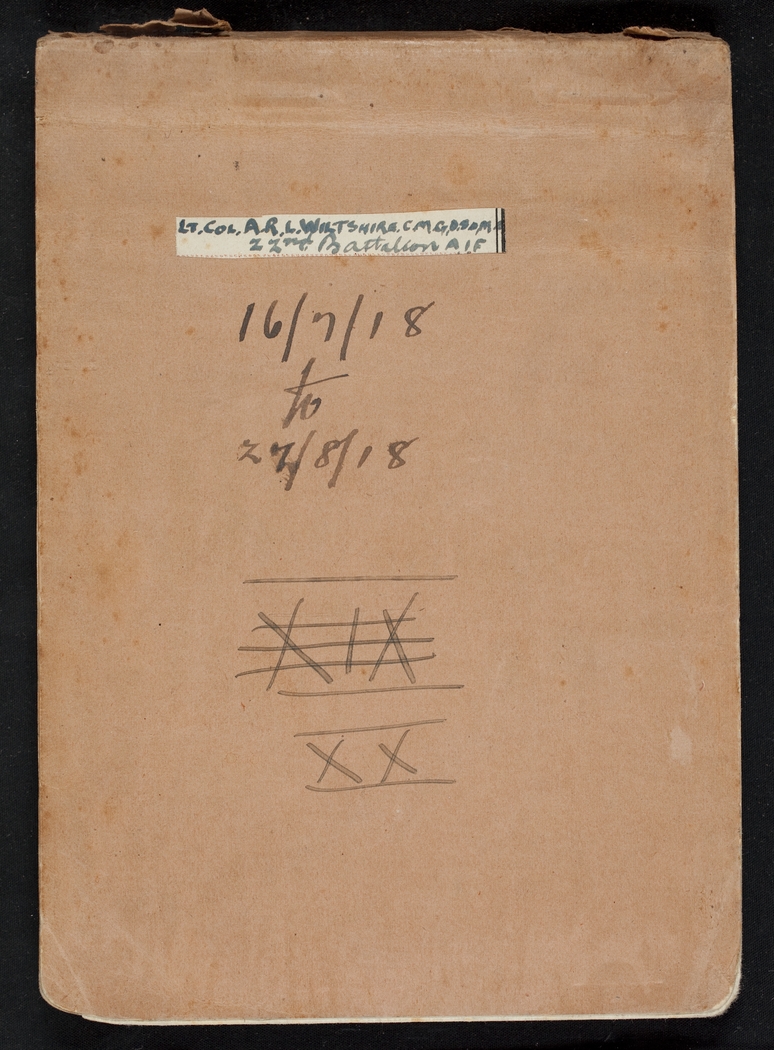 LT. COL. A.R.L. WILTSHIRE. C.M.G, D.S.O, M.C
22nd Battalion AIF
16/7/18
to
22/8/18
XIX
XX